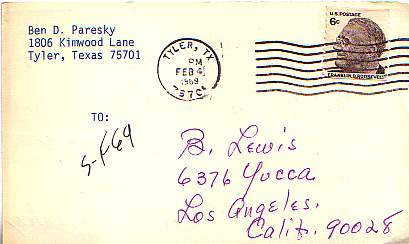 Ben D. Paresky
1806 Kimwood Lane
Tyler, Texas 75701
TYLER, TX
PM
FEB 4
1969
U.S. POSTAGE
6c
FRANKLIN D. ROOSEVELT
TO:
B. Lewis
6376 Yucca
Los Angeles.
Calif. 90028